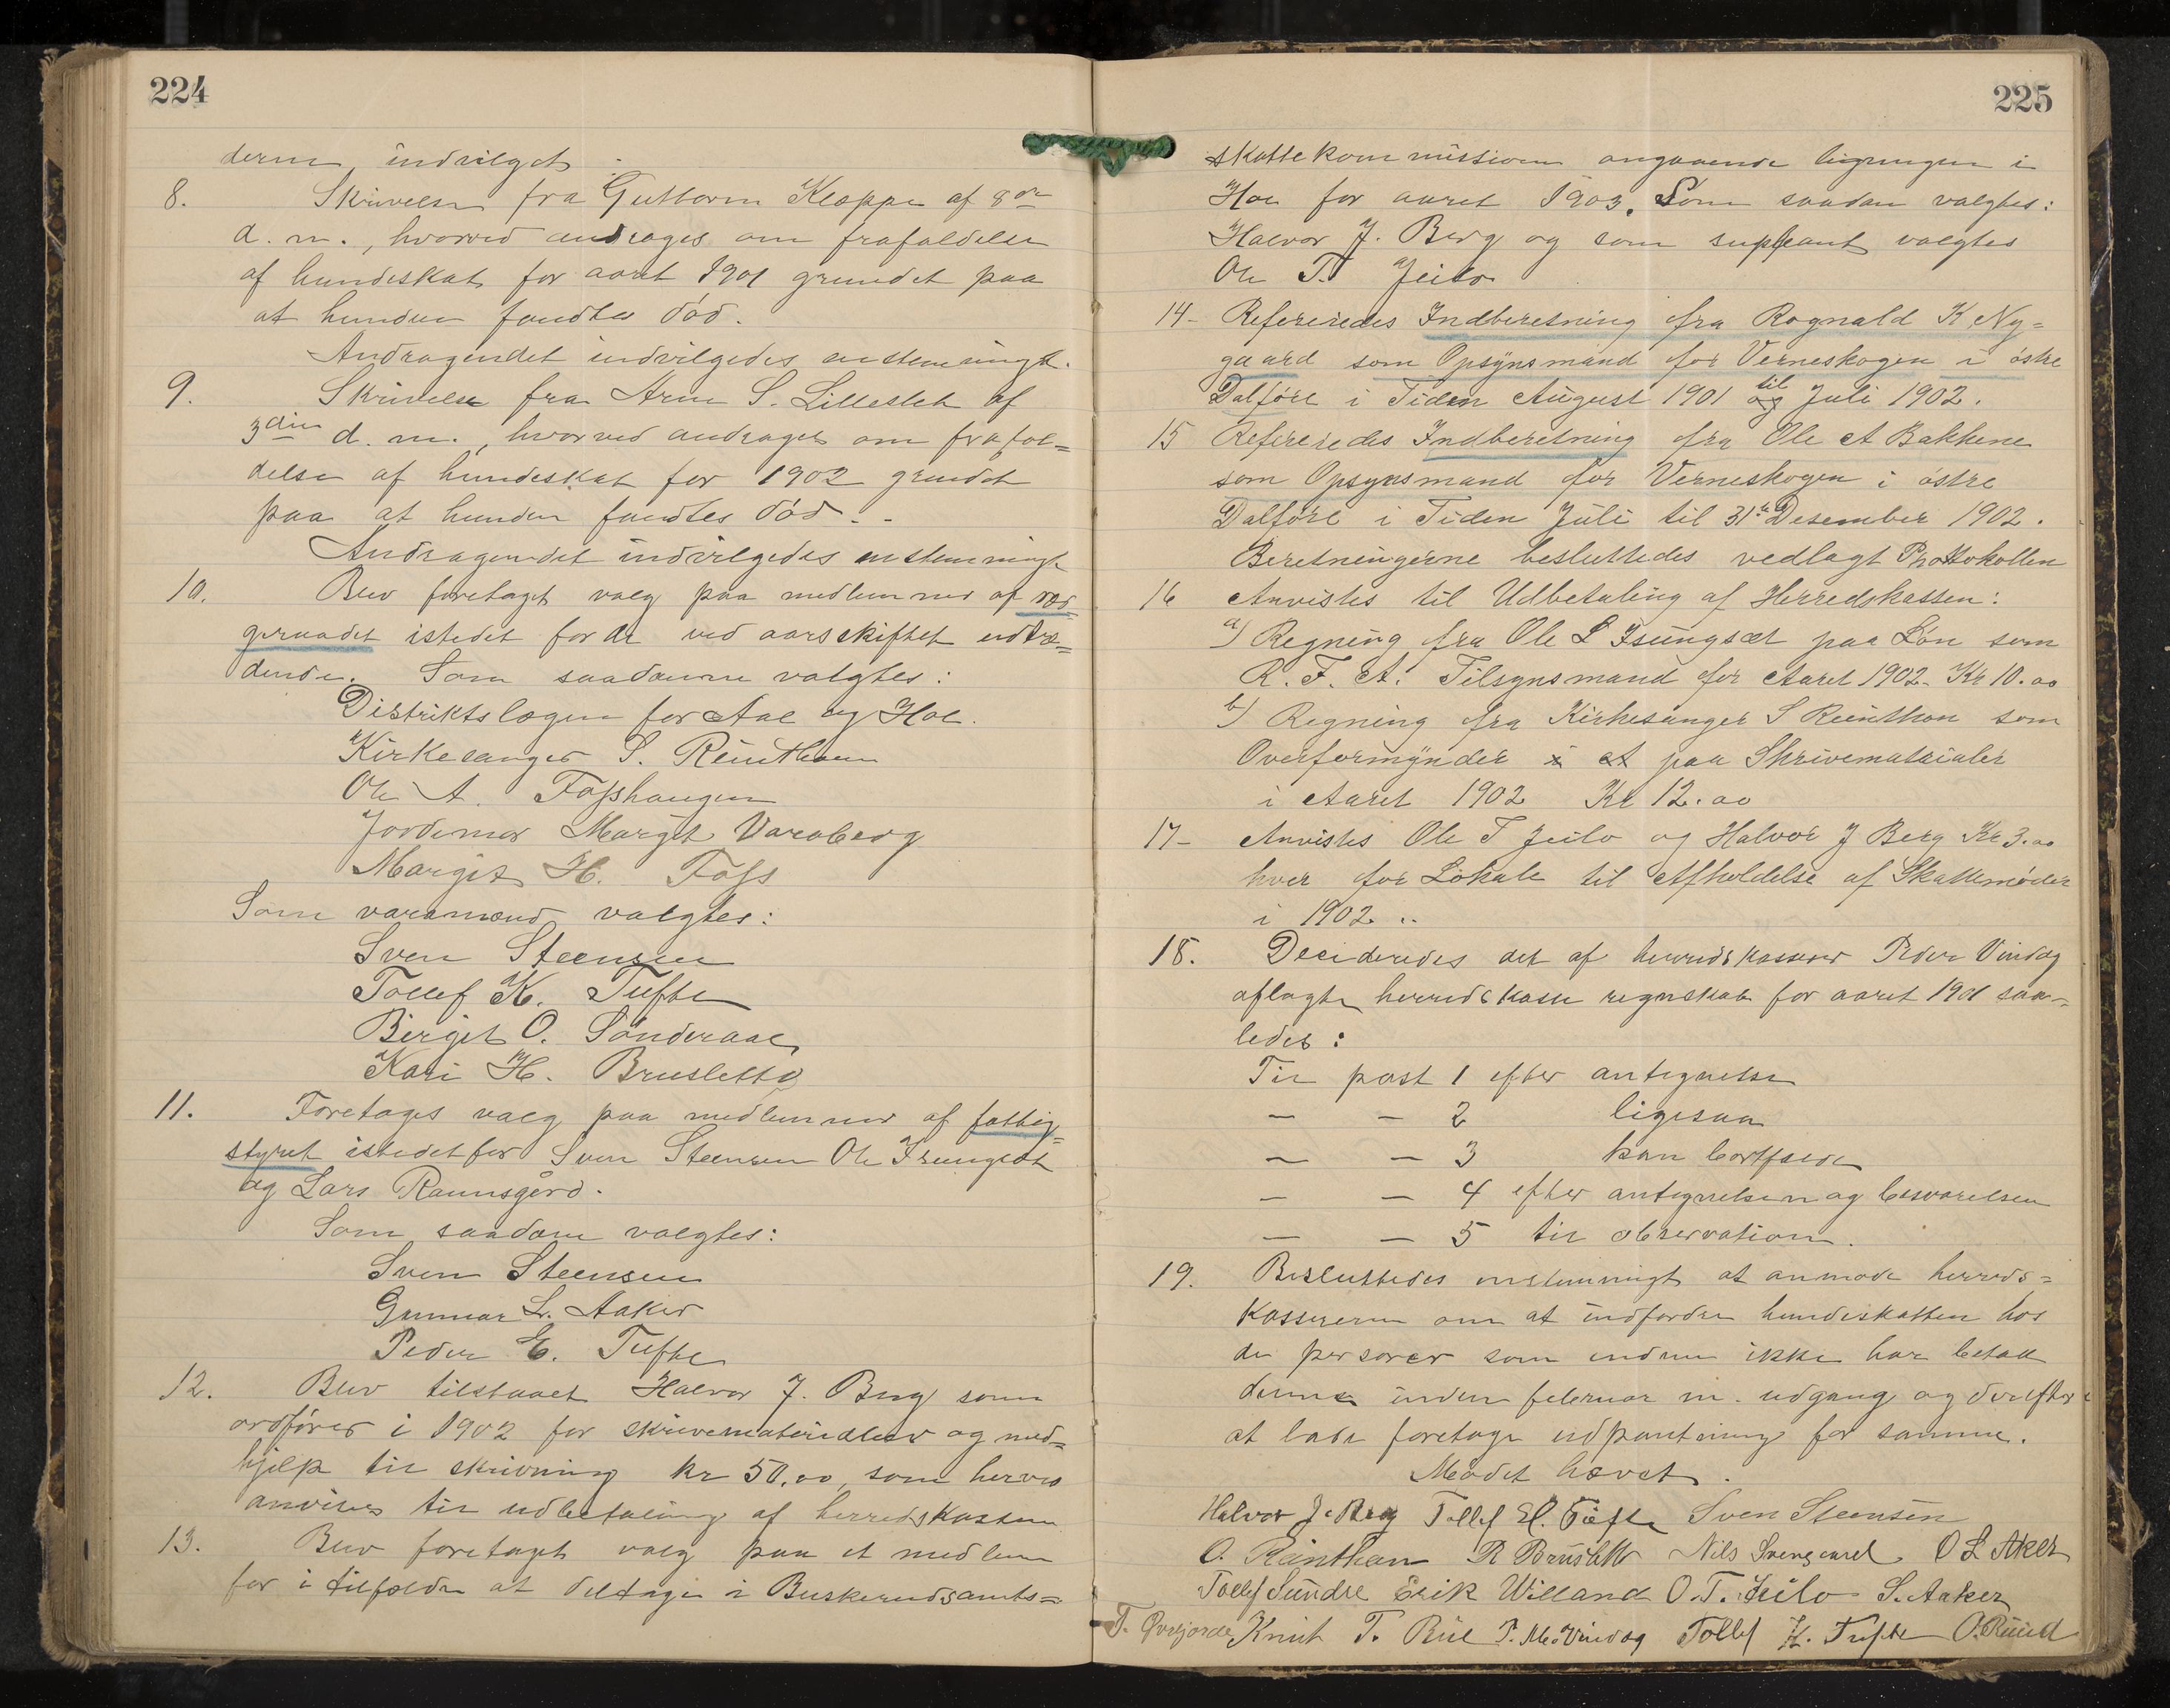 224
derne indvilget.
8. Skrivelse fra Guttorm Kleppe af 8de
d. m., hvorved androges om frafaldelse
af hundeskat for aaret 1901 grundet paa
at hunden fandtes død.
Andragendet indvilgedes enstemmigt.
9. Skrivelse fra Arne S. Lilleslet af
3die d. m., hvorved androges om frafal=
delse af hundeskat for 1902 grundet
paa at hunden fandtes død. -
Andragendet indvilgedes enstemmigt
10. Blev foretaget valg paa medlemmer af vær
geraadet istedet for de ved aarsskiftet udtræ=
dende. Som saadanne valgtes:
Distriktslægen for Aal og Hol.
Kirkesanger S. Reinthon
Ole A. Fosshaugen
Jordemor Margit Varaberg
Margit H. Foss
Som varamænd valgtes:
Sven Steensen
Tollef K. Tufte
Birgit O. Sønderaal
Kari H. Brusletto
11. Foretages valg paa medlemmer af fattig=
styret istedetfor Sven Steensen Ole Isungset
og Lars Raunsgård.
Som saadan valgtes:
Sven Steensen
Gunnar L. Aaker
Peder E. Tufte
12. Blev tilstaaet Halvor J. Berg som
ordfører i 1902 for skrivematerialier og med=
hjelp til skrivning kr 50.00, som herved
anvises til udbetaling af herredskassen
13. Blev foretaget valg paa et medlem
for i tilfælde at deltage i Buskerudsamts=
225
skattekommission angaaende ligningen i
Hol for aaret 1903. Som saadan valgtes:
Halvor J. Berg og som supleant valgtes
Ole T. Jeilo
14- Refereredes Indberetning fra Rognald K Ny=
gaard som Opsynsmand for Verneskogen i østre
Dalføre i Tiden August 1901 og til Juli 1902.
15 Refereredes Indberetning fra Ole A Bakkene
som Opsynsmand for Verneskogen i østre
Dalføre i Tiden Juli til 31te Desember 1902.
Beretningerne besluttedes vedlagt Prottokollen
16 Anvistes til Udbetaling af Herredskassen:
a) Regning fra Ole L Isungset paa Løn som
R. F. A. Tilsynsmand for Aaret 1902. Kr 10.00
b) Regning fra Kirkesanger S Reinthon som
Overformynder i et paa Skrivematrialer
i Aaret 1902 Kr 12.00
17- Anvistes Ole T Jeilo og Halvor J Berg Kr 3.00
hver for Lokale til Afholdelse af Skattemøder
i 1902 ..
18. Decideredes det af herredskasserer Peder Vindeg
aflagte herredskasse regnskab for aaret 1901 saa=
ledes:
Til post 1 efter antegnelse
— — 2 ligesaa
— — 3 kan bortfalde
— — 4 efter antegnelsen og besvarelsen
— — 5 til observation.
19. Besluttedes enstemmigt at anmode herreds=
kassereren om at indfordre hundeskatten hos
de personer som endnu ikke har betalt
denne inden februar m. udgang og derefter
at lade foretage udpantning for samme.
Mødet hævet.
Halvor J. Berg Tollef H. Tufte Sven Steensen
O. Reinthon R Brusletto Nils Svengaard O L Aker
Tollef Sundre Erik Willand O. T. Jeilo S. Aaker
T. Øvrejorde Knut T. Bile P. M. Vindeg Tollef K. Tufte O. Ruud